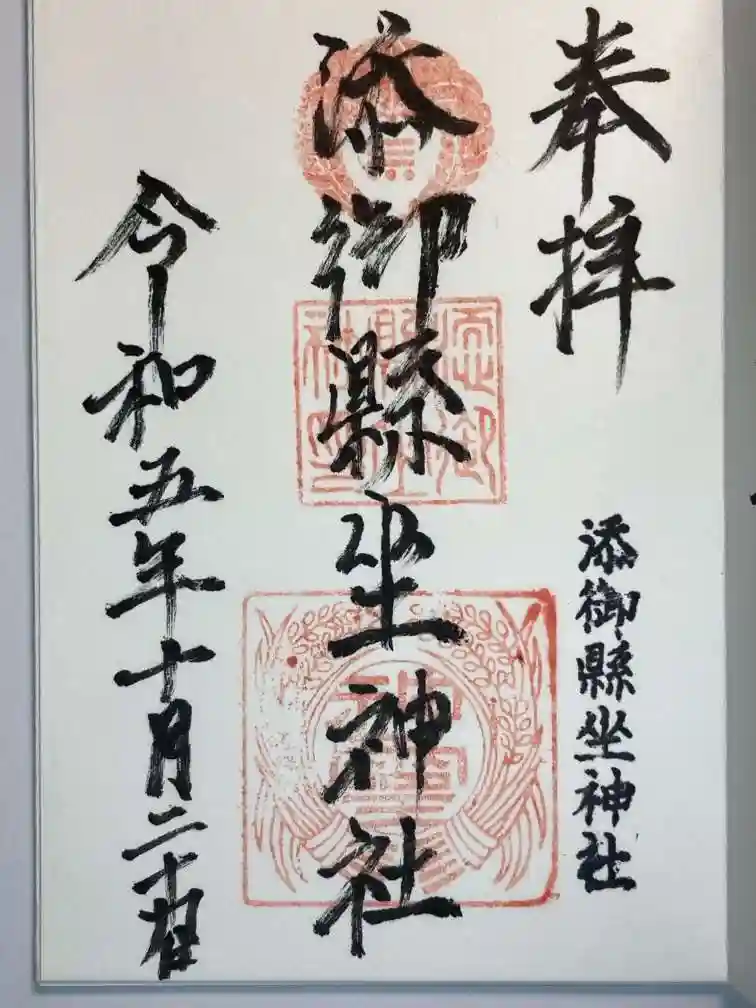 奉拝
添御縣坐神社
添御縣坐神社
令和五年十月二十日